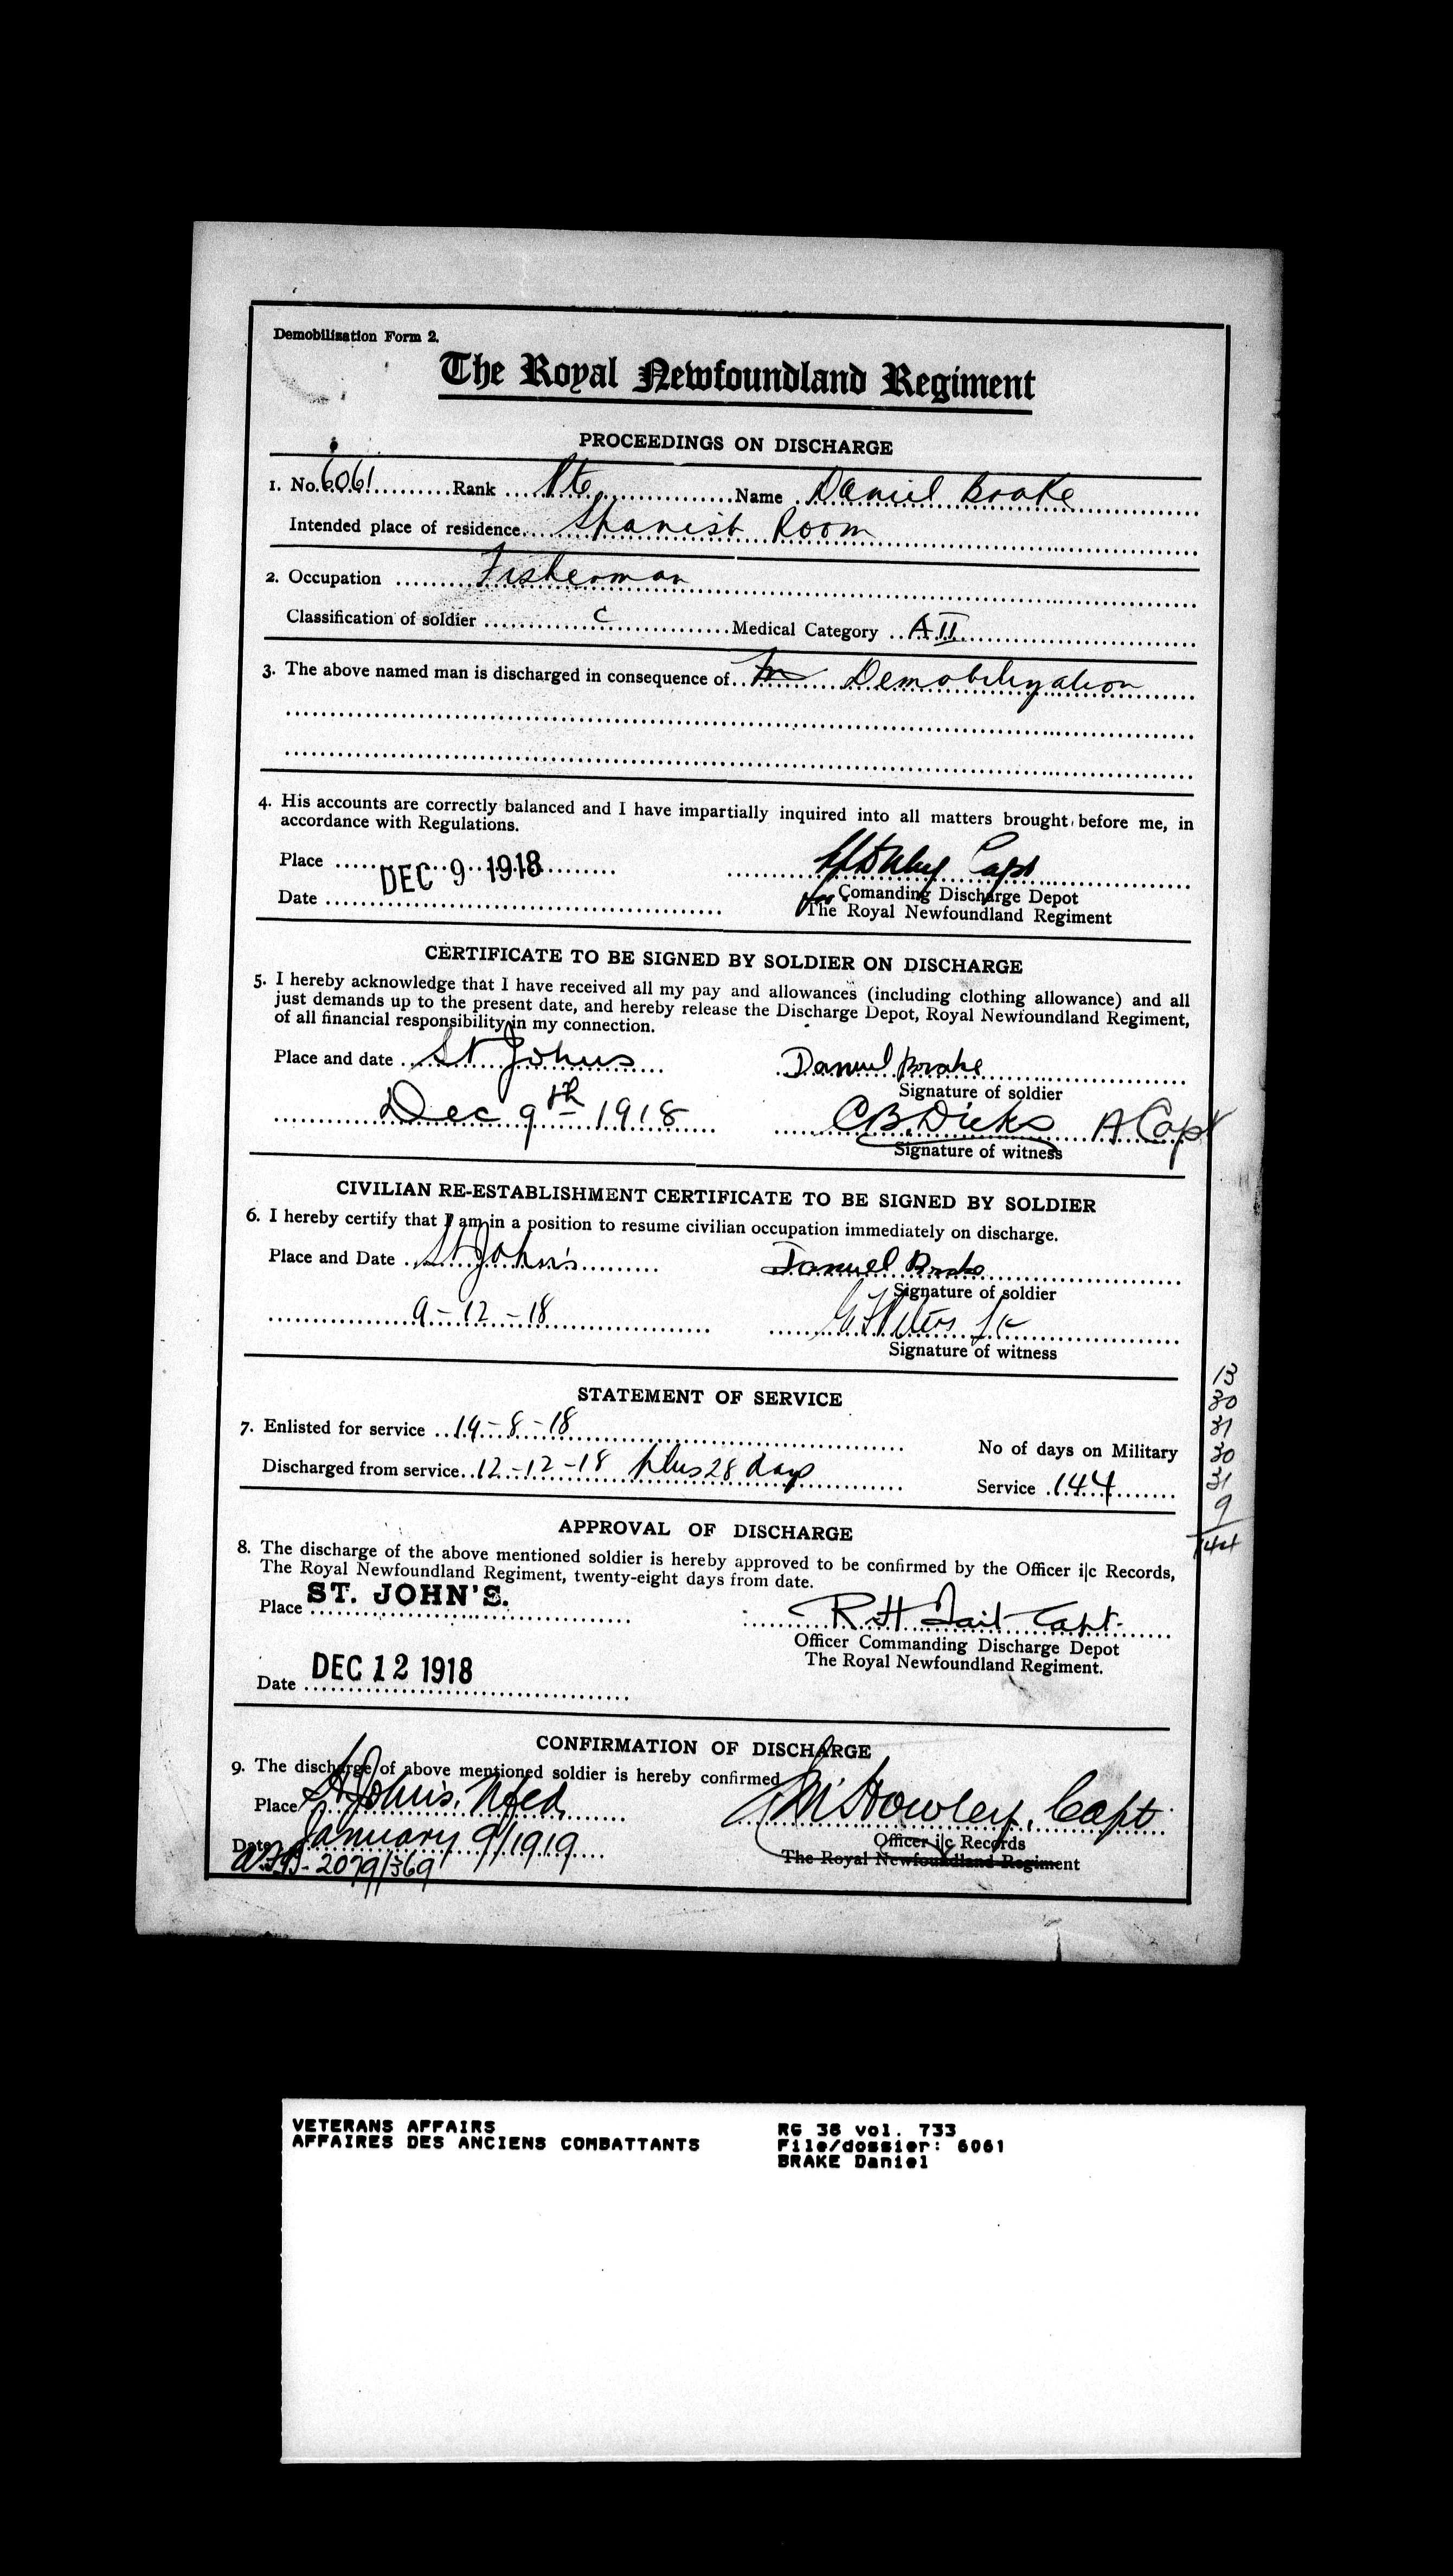 Demobilization Form 2.
The Royal Newfoundland Regiment
PROCEEDINGS ON DISCHARGE
1. No. 6061 Rank Pte Name Daniel Brake
Intended place of residence Spanish Room
2. Occupation Fisherman
Classification of soldier C Medical Category A II
3. The above named man is discharged in consequence of Demobilization
4. His accounts are correctly balanced and I have impartially inquired into all matters brought before me, in
accordance with Regulations.
Place
DEC 9 1918
Capt
Date
for Comanding Discharge Depot
The Royal Newfoundland Regiment
CERTIFICATE TO BE SIGNED BY SOLDIER ON DISCHARGE
5. I hereby acknowledge that I have received all my pay and allowances (including clothing allowance) and all
just demands up to the present date, and hereby release the Discharge Depot, Royal Newfoundland Regiment,
of all financial responsibility in my connection.
Place and date St Johns Daniel Brake
Signature of soldier
Dec 9th 1918 C.B. Dicks A Capt
Signature of witness
CIVILIAN RE-ESTABLISHMENT CERTIFICATE TO BE SIGNED BY SOLDIER
6. I hereby certify that I am in a position to resume civilian occupation immediately on discharge.
Place and Date St John's Daniel Brake
Signature of soldier
9-12-18
Signature of witness
STATEMENT OF SERVICE
7. Enlisted for service 19-8-18
No of days on Military
Discharged from service 12-12-18 plus 28 days
Service 144
13
30
31
30
31
9
144
APPROVAL OF DISCHARGE
8. The discharge of the above mentioned soldier is hereby approved to be confirmed by the Officer i|c Records,
The Royal Newfoundland Regiment, twenty-eight days from date.
Place ST. JOHN'S.
R H Tait Capt.
Officer Commanding Discharge Depot
The Royal Newfoundland Regiment.
Date DEC 12 1918
CONFIRMATION OF DISCHARGE
9. The discharge of above mentioned soldier is hereby confirmed
Place St John's, Nfld. Howley, Capt
Date January 9/1919
Officer i|c Records
The Royal Newfoundland Regiment
2079/369
VETERANS AFFAIRS
AFFAIRES DES ANCIENS COMBATTANTS
RG 38 vol. 733
File/dossier: 6061
BRAKE Daniel